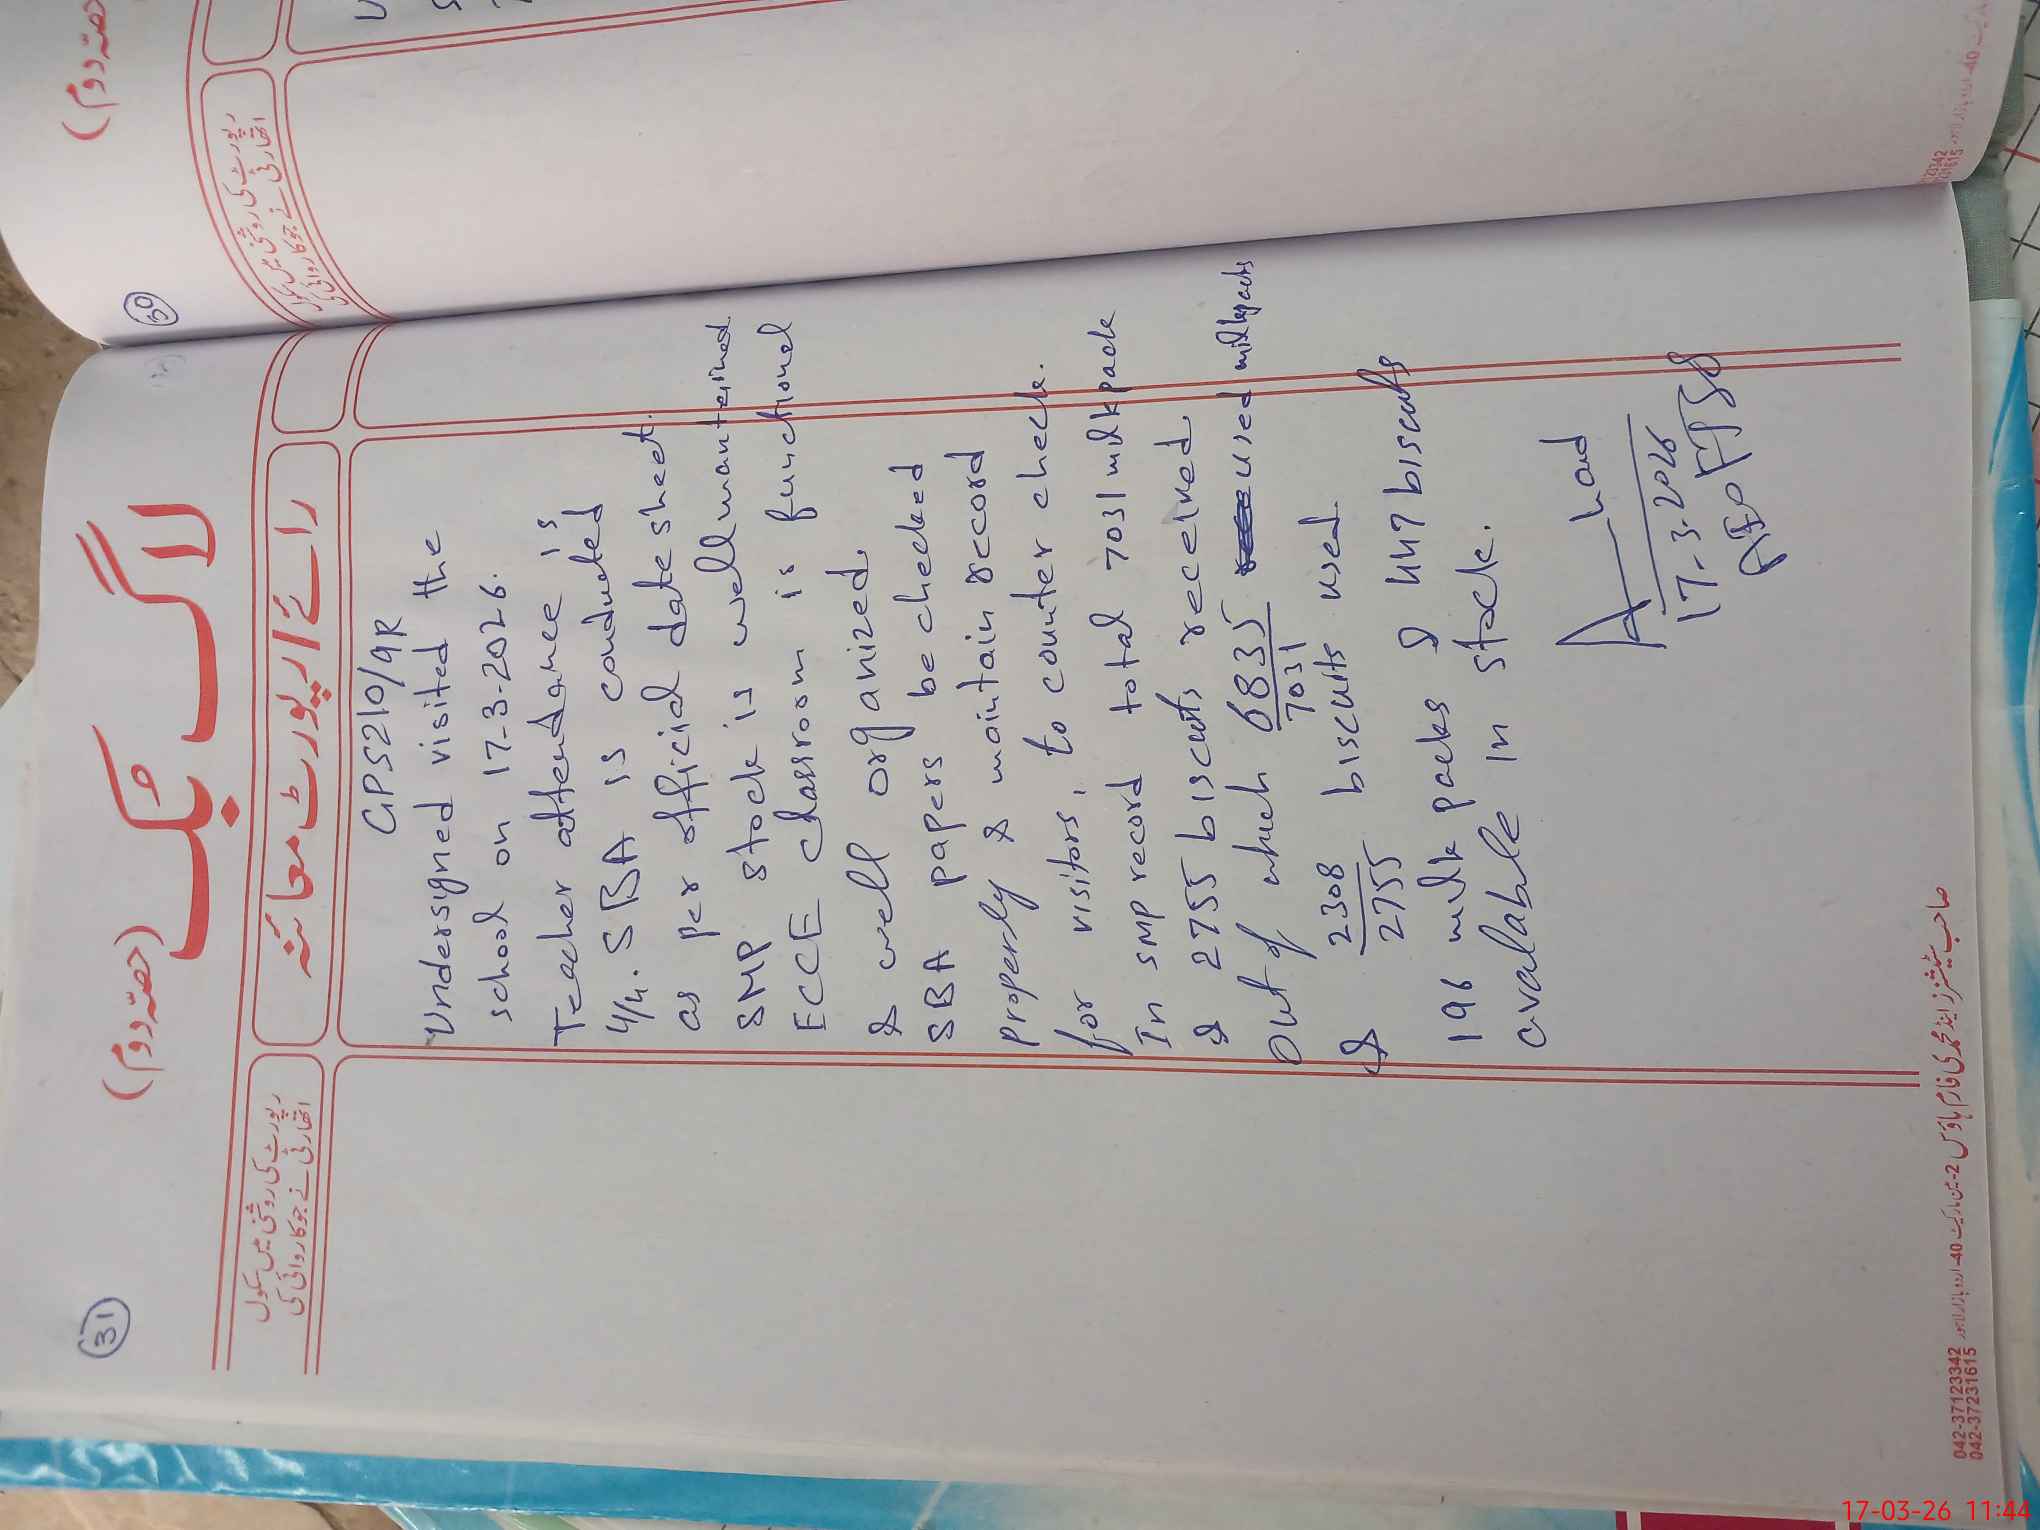 (31)
(حصہ دوم)
لاگ بک
رپورٹ کی روشنی میں سکول
اتھارٹی نے جو کاروائی کی
رائے / رپورٹ معائنہ
GPS210/9R
Undersigned visited the
school on 17-3-2026.
Teacher attendance is
4/4. SBA is conducted
as per official date sheet.
SMP stock is well mantained
ECCE classroom is functional
& well organized.
SBA papers be checked
properly & maintain record
for visitors, to counter check.
In SMP record total 7031 milk pack
& 2755 biscuits received
Out of which 6835/7031 used milk packs
& 2308/2755 biscuits used.
196 milk packs & 447 biscuits
avalable in stock.
17-3-2026
صاحب پبلیشرز اینڈ محمدی فارم ہاؤس 2-مین مارکیٹ 40-اردو بازار لاہور
042-37123342
042-37231615
(30)
(حصہ دوم)
رپورٹ کی روشنی میں سکول
اتھارٹی نے جو کاروائی کی
17-03-26 11:44